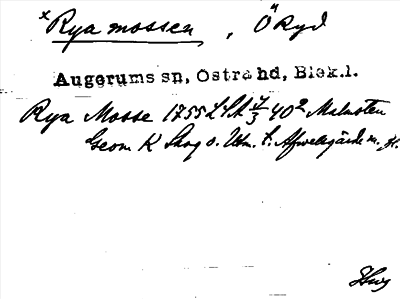 ×Rya mossen, Ö Ryd
Augerums sn, Östra hd, Blek.l.
Rya Mosse 1755 40² Malmsten
Geom K Skog o. Utm. t. Afwelsgärde m. fl.